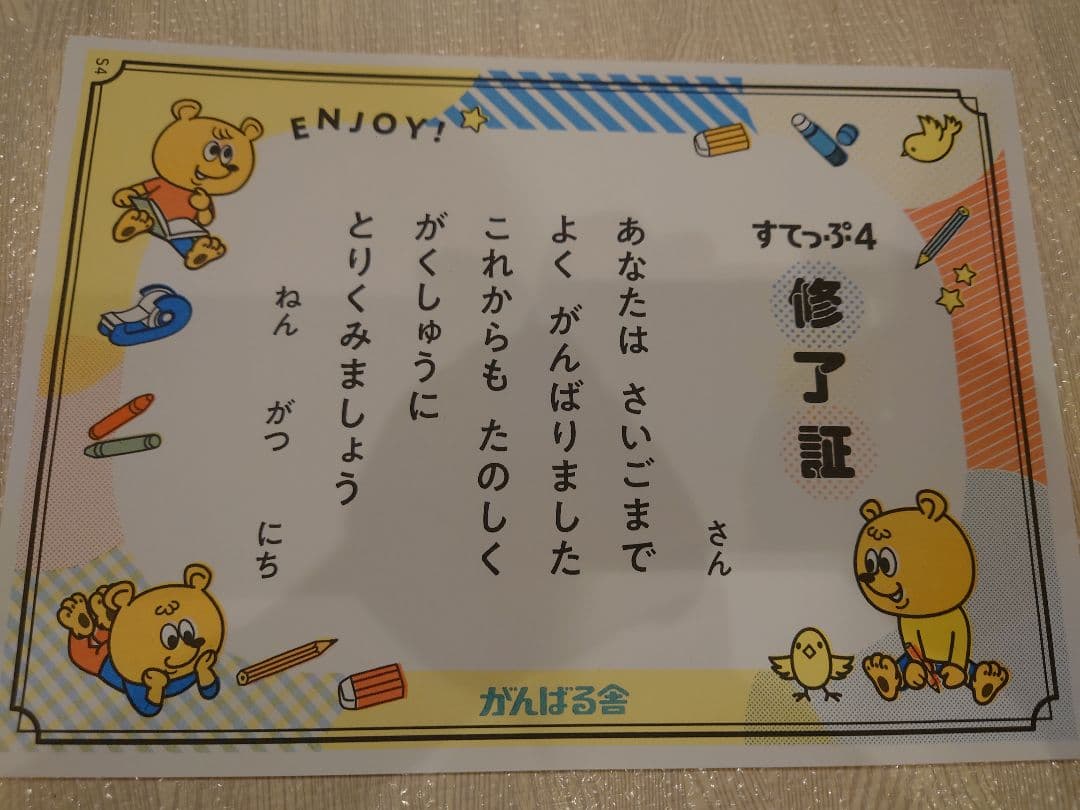 S4
ENJOY!
すてっぷ4
修了証
さん
あなたは さいごまで
よく がんばりました
これからも たのしく
がくしゅうに
とりくみましょう
ねん がつ にち
がんばる舎